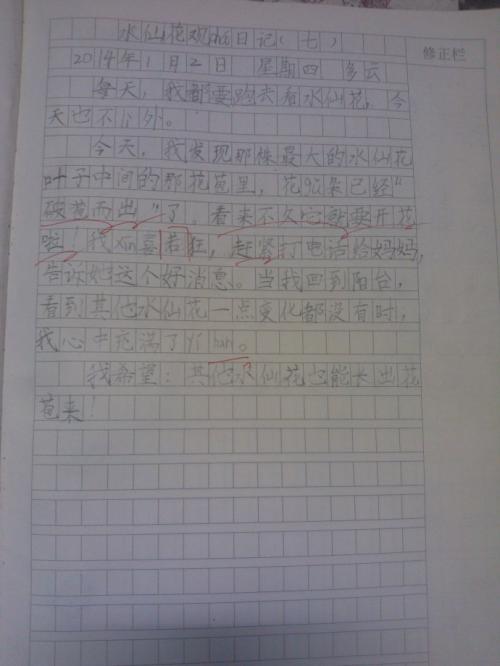 水仙花观chá日记(七)
修正栏
2014年1月2日 星期四 多云
每天,我都要跑去看水仙花,今
天也不例外。
今天,我发现那株最大的水仙花
叶子中间的那花苞里,花朵已经"
破苞而出"了,看来不久它就要开花
啦!我xīn喜若狂,赶紧打电话给妈妈,
告诉她这个好消息。当我回到阳台,
看到其他水仙花一点变化都没有时,
我心中充满了yí hàn。
我希望:其他水仙花也能长出花
苞来!